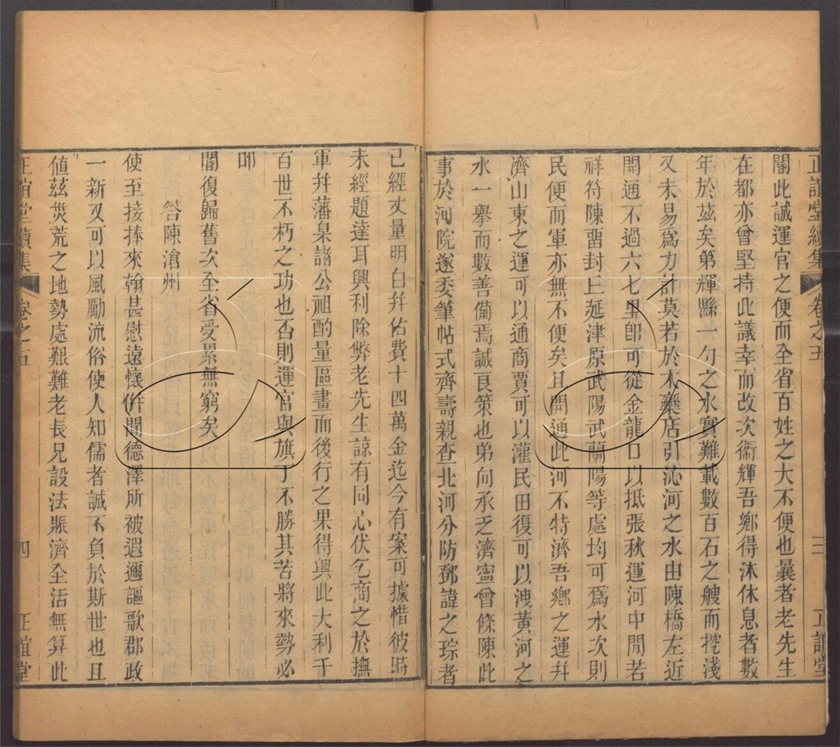 正誼堂續集 卷之五 三 正誼堂
關此誠運官之便而全省百姓之大不便也曩者老先生
在都亦曾堅持此議幸而改次衞輝吾鄉得沐休息者數
年於茲矣第輝縣一勺之水實難載數百石之艘而挖淺
又未易爲力計莫若於木藥店引沁河之水由陳橋左近
開通不過六七里卽可從金龍口以抵張秋運河中間若
祥符陳畱封丘延津原武陽武蘭陽等處均可爲水次則
民便而軍亦無不便矣且開通此河不特濟吾鄉之運幷
濟山東之運可以通商賈可以灌民田復可以洩黃河之
水一舉而數善備焉誠良策也弟向承乏濟寧曾條陳此
事於河院遂委筆帖式齊壽親查北河分防鄧諱之琮者
已經丈量明白幷估費十四萬金迄今有案可據惜彼時
未經題達耳興利除弊老先生諒有同心伏乞商之於撫
軍幷藩臬諸公祖酌量區畫而後行之果得興此大利千
百世不朽之功也否則運官與旗丁不勝其苦將來勢必
叩
閽復歸舊次全省受累無窮矣
答陳滄州
使至接捧來翰甚慰遠懷倂聞德澤所被遐邇謳歌郡政
一新又可以風勵流俗使人知儒者誠不負於斯世也且
値茲災荒之地勢處艱難老長兄設法賑濟全活無算此
正誼堂續集 卷之五 四 正誼堂